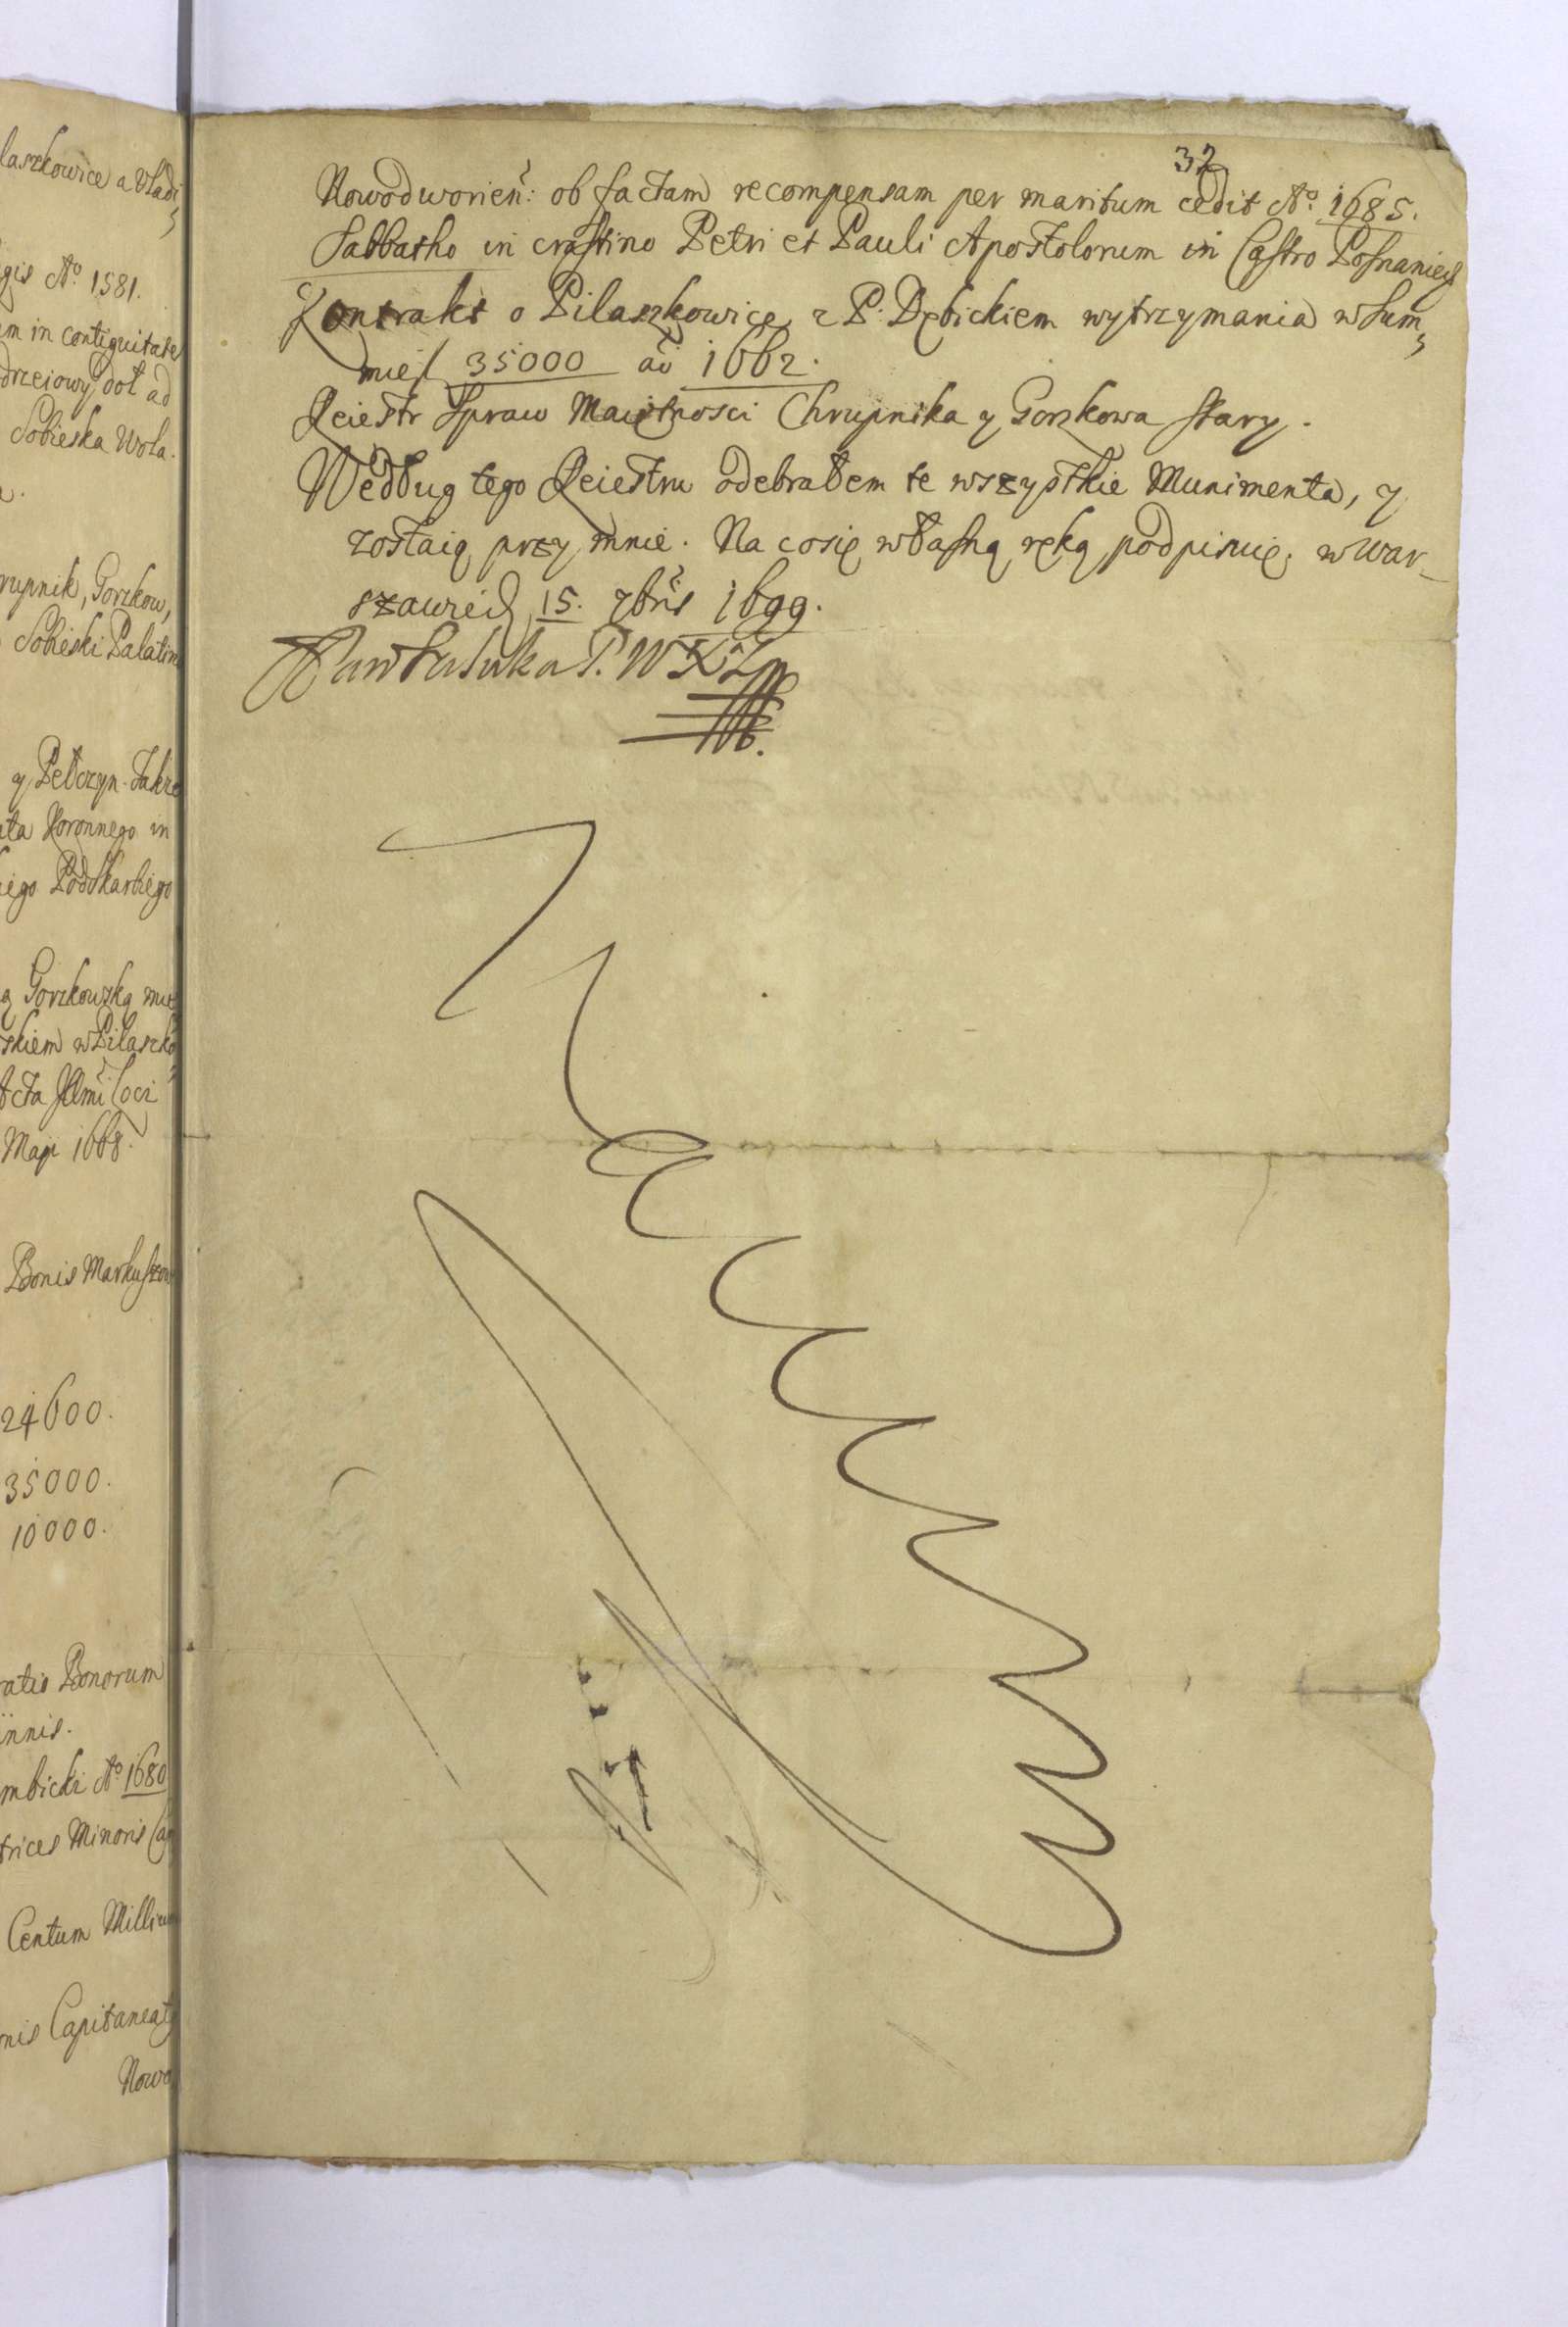 laszkowice a Vladi
gis Ao. 1581.
m in contiguitate
drzeiowy dot ad
Sobieska Wola.
rupnik, Gorzkow,
Sobieski Palatin
y Pełczyn. Takze
ata Koronnego in
iego Podskarbiego
ą Gorzkowską
skiem w Pilaszko
Acta Loci
Maji 1668.
Bonis Markuszow
24600.
35000.
10000.
ratio Bonorum
innis.
mbicki Ao. 1680
trices Minoris
Centum Millium
nis Capitaneat
Nowo
32
Nowodworień: ob factam recompensam per maritum cedit Ao. 1685.
Sabbatho in crastino Petri et Pauli Apostolorum in Castro Posnanień
Kontrakt o Pilaszkowice z P. Dębickiem wytrzymania w Sum
mieſ 35000 ao 1662.
Reiestr Spraw Maiętnosci Chrupnika y Gorzkowa stary.
Według tego Reiestru odebrałem te wszystkie Munimenta, y
zostaią przy mnie. Na co się własną ręką podpisuię. w War-
szawie 15. 7bris 1699.
P. W X L